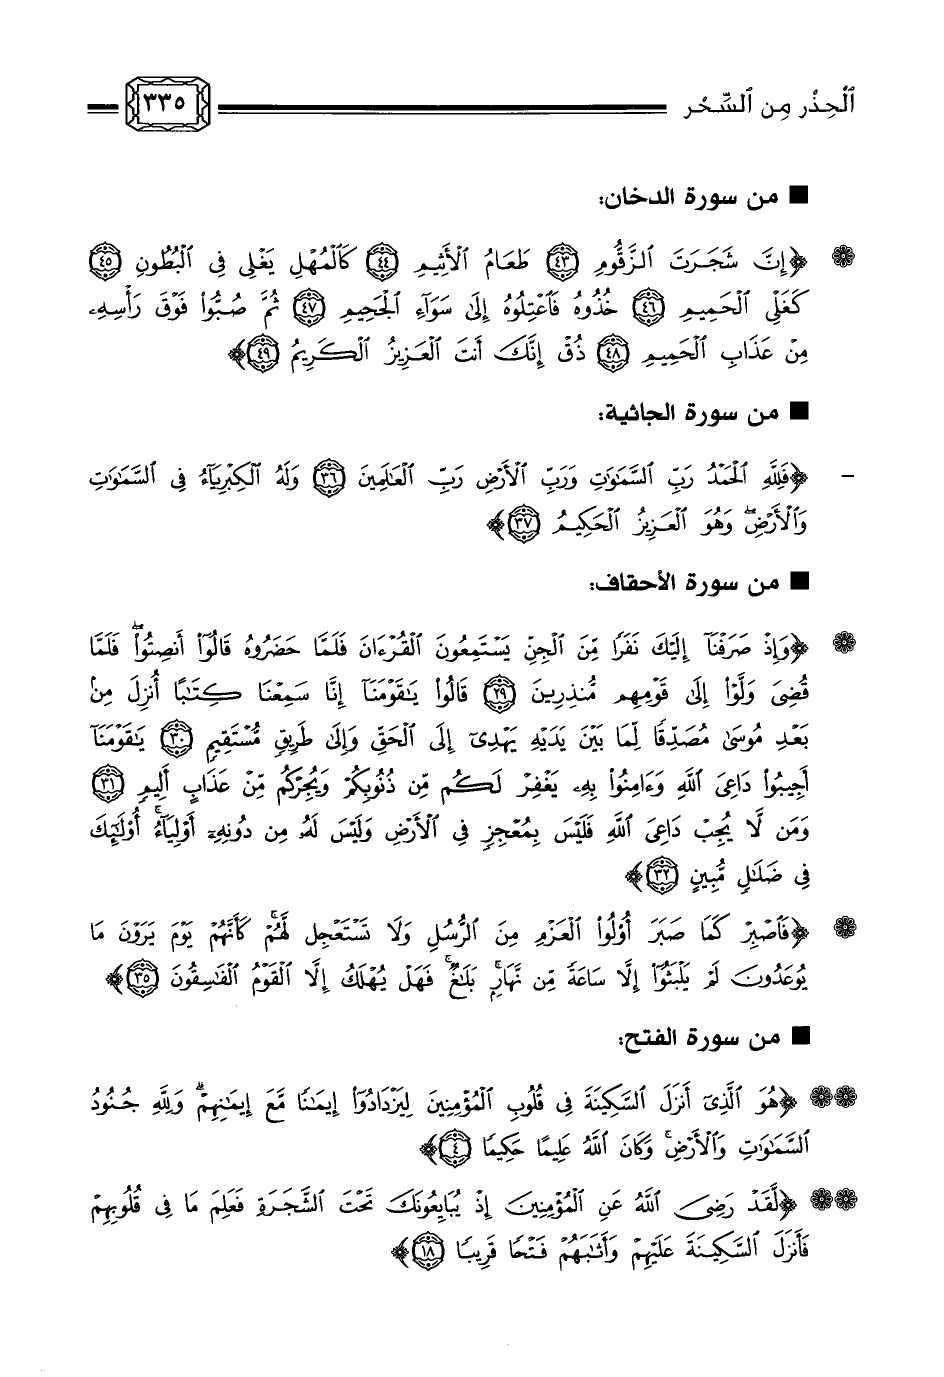 ٱلْحِذْر مِن ٱلسِّحْر ٣٣٥
■ من سورة الدخان:
﴿إِنَّ شَجَرَتَ ٱلزَّقُّومِ ٤٣ طَعَامُ ٱلْأَثِيمِ ٤٤ كَٱلْمُهْلِ يَغْلِى فِى ٱلْبُطُونِ ٤٥
كَغَلْىِ ٱلْحَمِيمِ ٤٦ خُذُوهُ فَٱعْتِلُوهُ إِلَىٰ سَوَآءِ ٱلْجَحِيمِ ٤٧ ثُمَّ صُبُّوا۟ فَوْقَ رَأْسِهِۦ
مِنْ عَذَابِ ٱلْحَمِيمِ ٤٨ ذُقْ إِنَّكَ أَنتَ ٱلْعَزِيزُ ٱلْكَرِيمُ ٤٩﴾
■ من سورة الجاثية:
- ﴿فَلِلَّهِ ٱلْحَمْدُ رَبِّ ٱلسَّمَٰوَٰتِ وَرَبِّ ٱلْأَرْضِ رَبِّ ٱلْعَٰلَمِينَ ٣٦ وَلَهُ ٱلْكِبْرِيَآءُ فِى ٱلسَّمَٰوَٰتِ
وَٱلْأَرْضِ ۖ وَهُوَ ٱلْعَزِيزُ ٱلْحَكِيمُ ٣٧﴾
■ من سورة الأحقاف:
﴿وَإِذْ صَرَفْنَآ إِلَيْكَ نَفَرًا مِّنَ ٱلْجِنِّ يَسْتَمِعُونَ ٱلْقُرْءَانَ فَلَمَّا حَضَرُوهُ قَالُوٓا۟ أَنصِتُوا۟ ۖ فَلَمَّا
قُضِىَ وَلَّوْا۟ إِلَىٰ قَوْمِهِم مُّنذِرِينَ ٢٩ قَالُوا۟ يَٰقَوْمَنَآ إِنَّا سَمِعْنَا كِتَٰبًا أُنزِلَ مِنۢ
بَعْدِ مُوسَىٰ مُصَدِّقًا لِّمَا بَيْنَ يَدَيْهِ يَهْدِىٓ إِلَى ٱلْحَقِّ وَإِلَىٰ طَرِيقٍ مُّسْتَقِيمٍ ٣٠ يَٰقَوْمَنَآ
أَجِيبُوا۟ دَاعِىَ ٱللَّهِ وَءَامِنُوا۟ بِهِۦ يَغْفِرْ لَكُم مِّن ذُنُوبِكُمْ وَيُجِرْكُم مِّنْ عَذَابٍ أَلِيمٍ ٣١
وَمَن لَّا يُجِبْ دَاعِىَ ٱللَّهِ فَلَيْسَ بِمُعْجِزٍ فِى ٱلْأَرْضِ وَلَيْسَ لَهُۥ مِن دُونِهِۦٓ أَوْلِيَآءُ ۚ أُو۟لَٰٓئِكَ
فِى ضَلَٰلٍ مُّبِينٍ ٣٢﴾
﴿فَٱصْبِرْ كَمَا صَبَرَ أُو۟لُوا۟ ٱلْعَزْمِ مِنَ ٱلرُّسُلِ وَلَا تَسْتَعْجِل لَّهُمْ ۚ كَأَنَّهُمْ يَوْمَ يَرَوْنَ مَا
يُوعَدُونَ لَمْ يَلْبَثُوٓا۟ إِلَّا سَاعَةً مِّن نَّهَارٍۭ ۚ بَلَٰغٌ ۚ فَهَلْ يُهْلَكُ إِلَّا ٱلْقَوْمُ ٱلْفَٰسِقُونَ ٣٥﴾
■ من سورة الفتح:
﴿هُوَ ٱلَّذِىٓ أَنزَلَ ٱلسَّكِينَةَ فِى قُلُوبِ ٱلْمُؤْمِنِينَ لِيَزْدَادُوٓا۟ إِيمَٰنًا مَّعَ إِيمَٰنِهِمْ ۗ وَلِلَّهِ جُنُودُ
ٱلسَّمَٰوَٰتِ وَٱلْأَرْضِ ۚ وَكَانَ ٱللَّهُ عَلِيمًا حَكِيمًا ٤﴾
﴿لَّقَدْ رَضِىَ ٱللَّهُ عَنِ ٱلْمُؤْمِنِينَ إِذْ يُبَايِعُونَكَ تَحْتَ ٱلشَّجَرَةِ فَعَلِمَ مَا فِى قُلُوبِهِمْ
فَأَنزَلَ ٱلسَّكِينَةَ عَلَيْهِمْ وَأَثَٰبَهُمْ فَتْحًا قَرِيبًا ١٨﴾